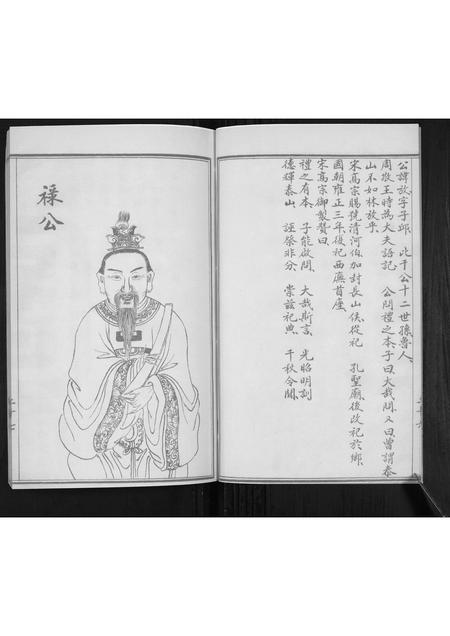 公諱放字子邱比干公十二世孫魯人
周敬王時為大夫語記 公問禮之本子曰大哉問又曰曾謂泰
山不如林放乎
宋高宗賜號清河伯加封長山侯從祀 孔聖廟後改祀於鄉
國朝雍正三年復祀西廡首座
宋高宗御製贊曰
禮之有本 子能啟問 大哉斯言 光昭明訓
德輝泰山 誣祭非分 崇茲祀典 千秋令聞
祿公